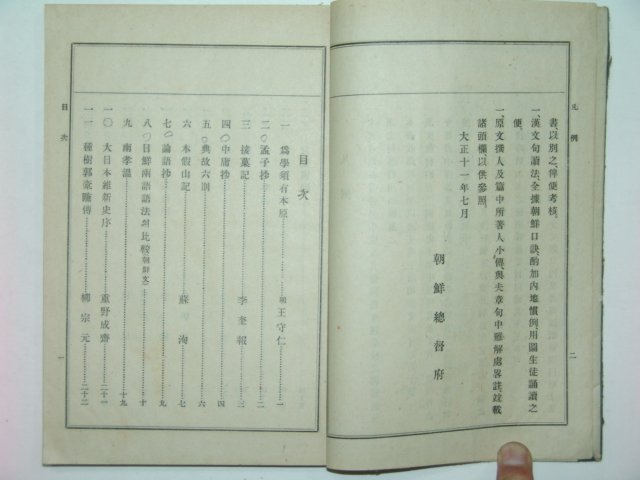 凡例
二
書以別之俾便考核
一、漢文句讀法全據朝鮮口訣酌加內地慣例用圖生徒誦讀之
便
一、原文撰人及篇中所著人小傳與夫章句中難解處畧註竝載
諸頭欄以供參照
大正十一年七月
朝鮮總督府
目次
一
目次
一 爲學須有本原 明 王守仁 一
二〇 孟子抄 二
三 接菓記 李奎報 三
四〇 中庸抄 四
五〇 典故六則 六
六 木假山記 蘇洵 七
七〇 論語抄 九
八〇 日鮮兩語語法의比較(朝鮮文) 十
九 南孝溫 十九
一〇 大日本維新史序 重野成齋 二十一
一一 種樹郭橐駝傳 柳宗元 二十二